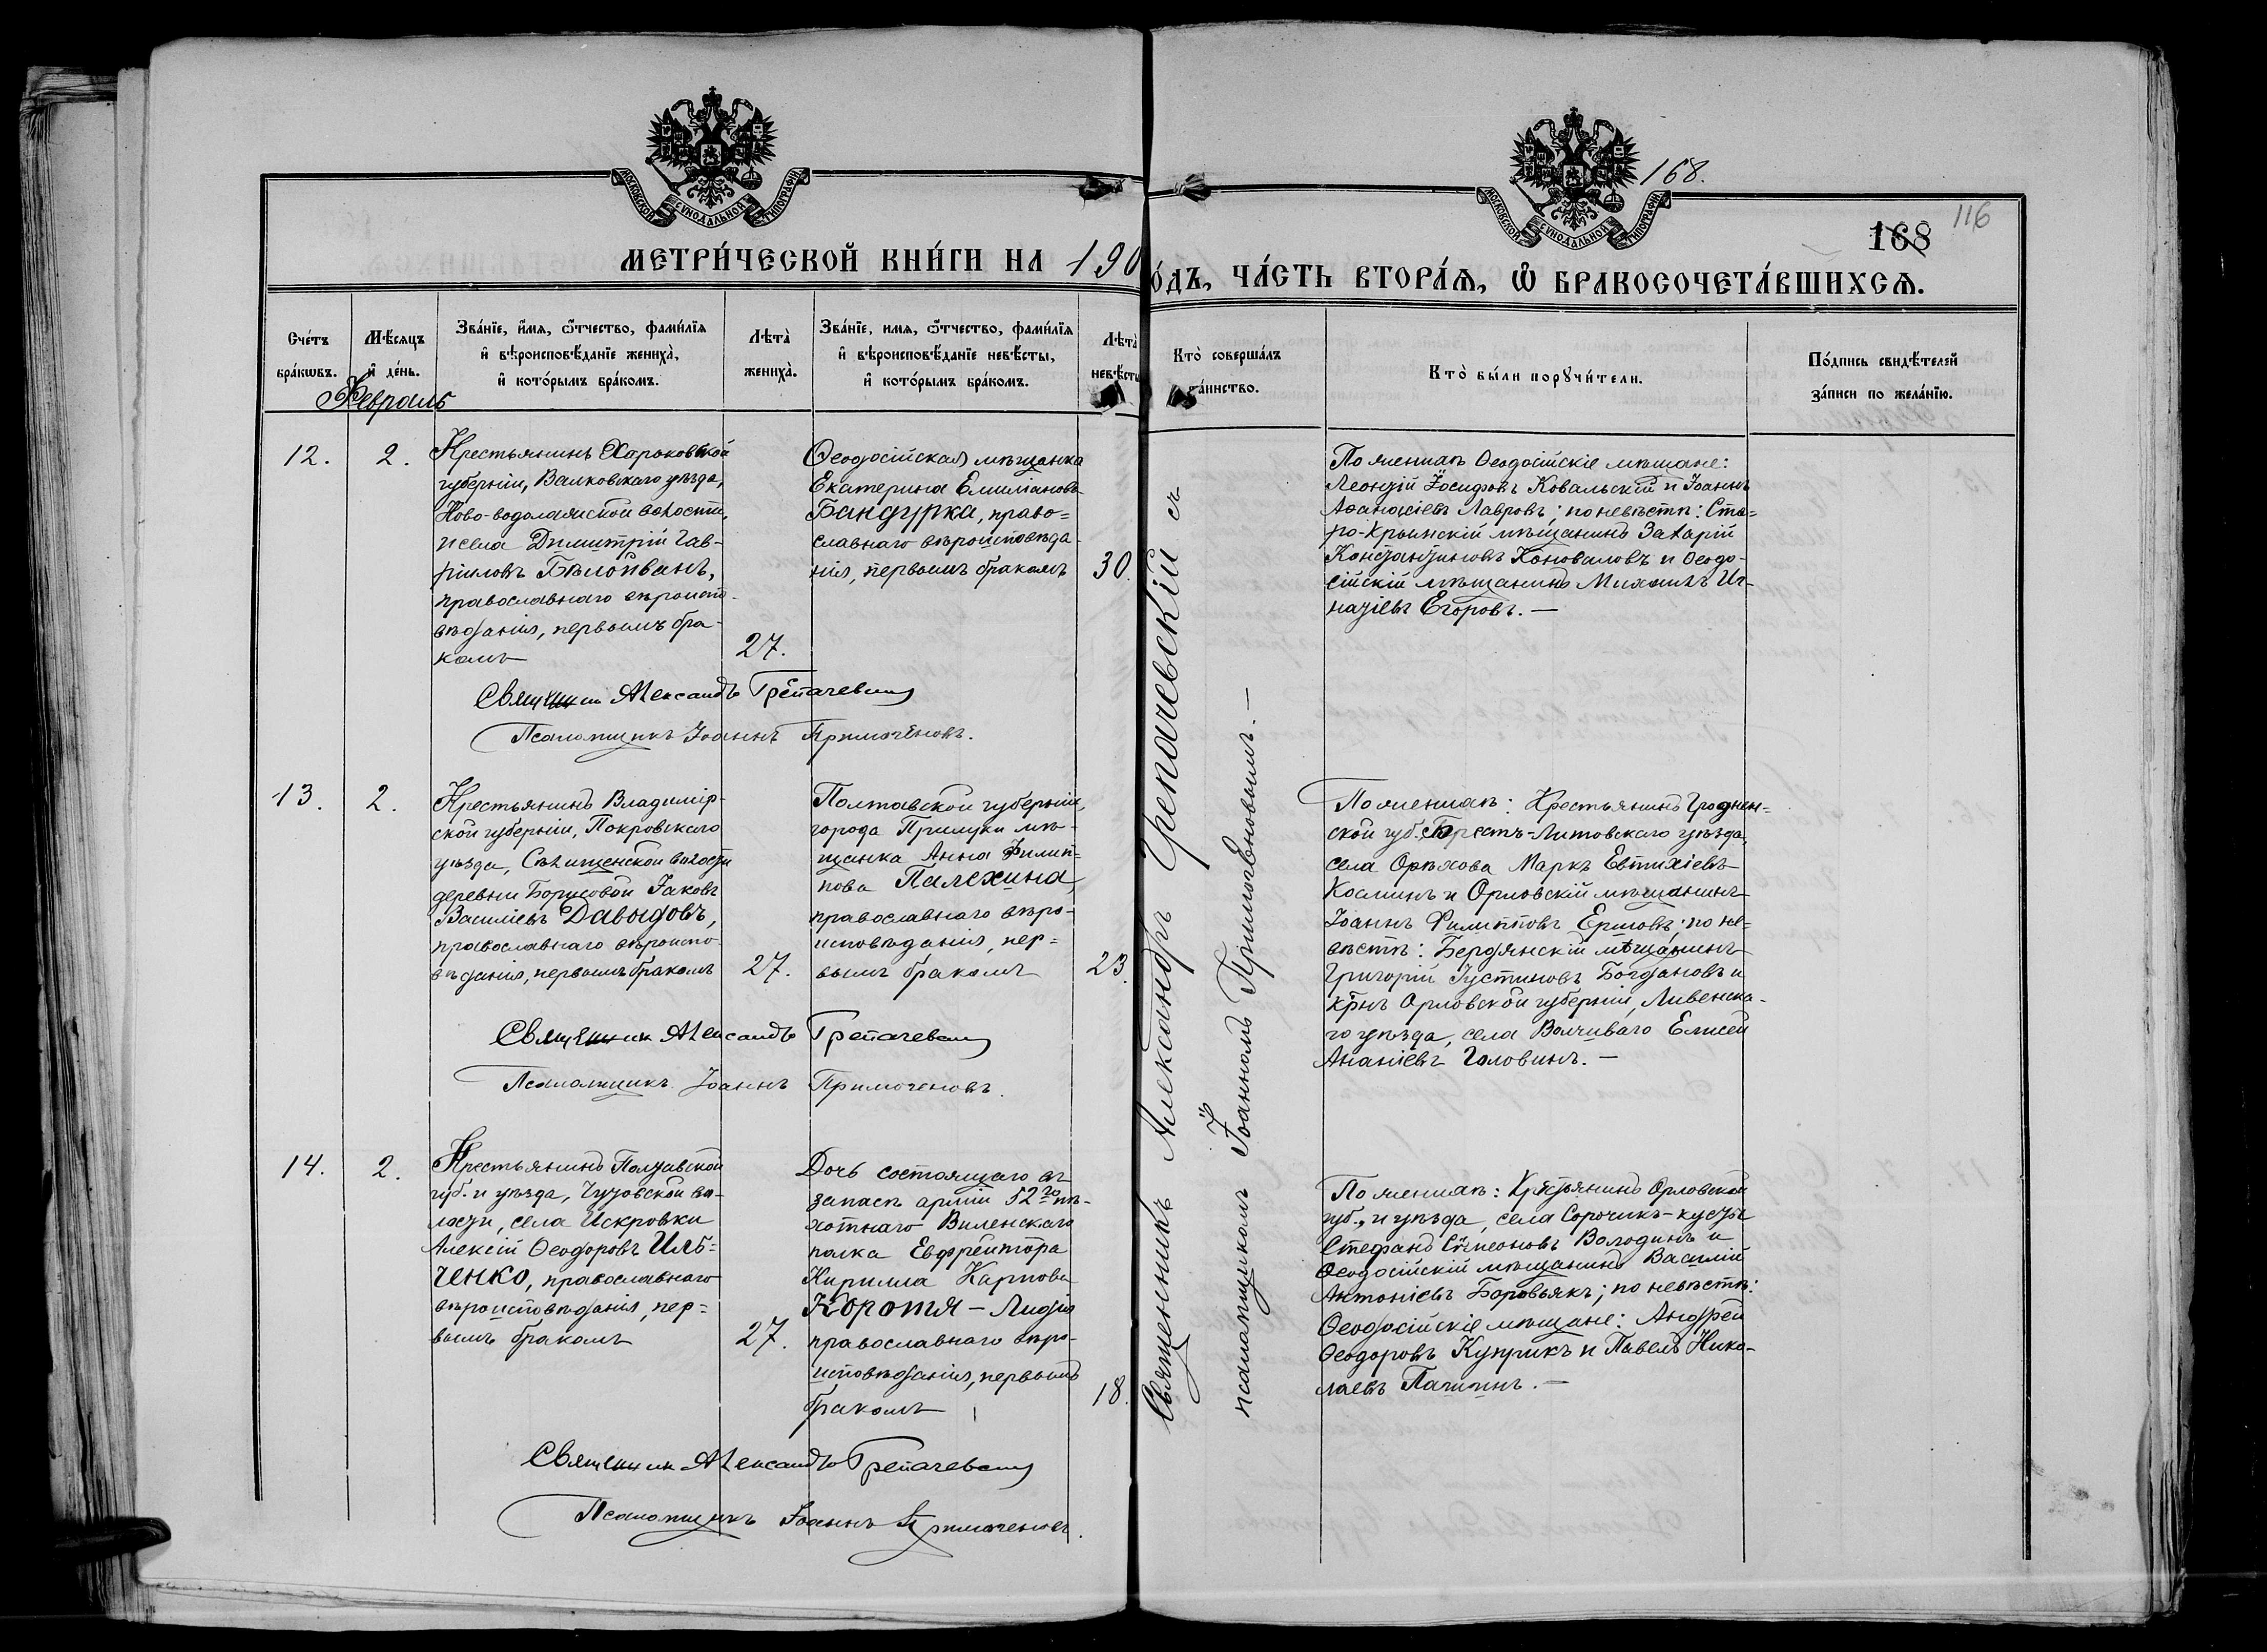 168.
116
168
МОСКОВСКОЙ СѴНОДАЛЬНОЙ ТИПОГРАФІИ
МОСКОВСКОЙ СѴНОДАЛЬНОЙ ТИПОГРАФІИ
МЕТРИ́ЧЕСКОЙ КНИ́ГИ НА 190
О́ДЪ, ЧА́СТЬ ВТОРА́Я, Ѽ БРАКОСОЧЕТА́ВШИХСЯ.
Сче́тъ
бра́кѡвъ.
Мѣ́сяцъ
и҆ де́нь.
Зва́нїе, и҆́мя, ѻ҆́тчество, фами́лїя
и҆ вѣроисповѣ́данїе жениха̀,
и҆ кото́рымъ бра́комъ.
Лѣта̀
жениха̀.
Зва́нїе, имя, ѻ҆́тчество, фами́лїя
и҆ вѣроисповѣ́данїе невѣ́сты,
и҆ кото́рымъ бра́комъ.
Лѣта̀
невѣ́сты
Кто̀ соверша́лъ
та́инство.
Кто̀ бы́ли порꙋчи́тели.
По́дпись свидѣ́телей
за́писи по жела́нїю.
Февраль
12.
2.
Крестьянинъ Харьковской
губерніи, Валковскаго уѣзда,
Ново-водолажской волости,
и села Димитрій Гав-
риловъ Бѣлоиванъ,
православнаго вѣроиспо-
вѣданія, первымъ бра-
комъ
27.
Ѳеодосійская мѣщанка
Екатерина Емиліанова
Бандурка, право=
славнаго вѣроисповѣда-
нія, первымъ бракомъ
30.
По женихѣ Ѳеодосійскіе мѣщане:
Леонтій Іосифовъ Ковальскій и Іоаннъ
Аѳанасіевъ Лавровъ; по невѣстѣ: Ста=
ро-Крымскій мѣщанинъ Захарій
Константиновъ Коноваловъ и Ѳеодо-
сійскій мѣщанинъ Михаилъ Иг-
натіевъ Егоровъ. —
Священникъ Александръ Трепачевскій
Псаломщикъ Іоаннъ Примоченовъ.
13.
2.
Крестьянинъ Владимір-
ской губерніи, Покровскаго
уѣзда, волости
деревни Борисовой Іаковъ
Василіевъ Давыдовъ,
православнаго вѣроиспо-
вѣданія, первымъ бракомъ
27.
Полтавской губерніи,
города Прилуки мѣ-
щанка Анна Филип=
пова Палехина,
православнаго вѣро-
исповѣданія, пер=
вымъ бракомъ
23.
По женихѣ: Крестьянинъ Гроднен=
ской губ., Брестъ-Литовскаго уѣзда,
села Орѣхова Маркъ Евтихіевъ
Косминъ и Орловскій мѣщанинъ
Іоаннъ Филипповъ Ершовъ; по не=
вѣстѣ: Бердянскій мѣщанинъ
Григорій Іустиновъ Богдановъ и
кр̃нъ Орловской губерніи, Ливенска-
го уѣзда, села Волчиваго Елисей
Ананіевъ Головинъ. —
Священникъ Александръ Трепачевскій
Псаломщикъ Іоаннъ Примоченовъ.
14.
2.
Крестьянинъ Полтавской
губ. и уѣзда, Чутовской во-
лости, села Искровки
Алексій Ѳеодоровъ Иль=
ченко, православнаго
вѣроисповѣданія, пер=
вымъ бракомъ
27.
Дочь состоящаго въ
запасѣ арміи 52го пѣ-
хотнаго Виленскаго
полка Ефрейтора
Кирилла Карпова
Коротя — Лидія
православнаго вѣро-
исповѣданія, первымъ
бракомъ
18.
По женихѣ: Крестьянинъ Орловской
губ., и уѣзда, села Сорочихъ-кусты
Стефанъ Симеоновъ Володинъ и
Ѳеодосійскій мѣщанинъ Василій
Антоніевъ Боровьякъ; по невѣстѣ:
Ѳеодосійскіе мѣщане: Андрей
Ѳеодоровъ Куприкъ и Павелъ Нико-
лаевъ Пачинъ. —
Священникъ Александръ Трепачевскій
Псаломщикъ Іоаннъ Примоченовъ.
Священникъ Александръ Трепачевскій съ
псаломщикомъ Іоанномъ Примоченовымъ. —